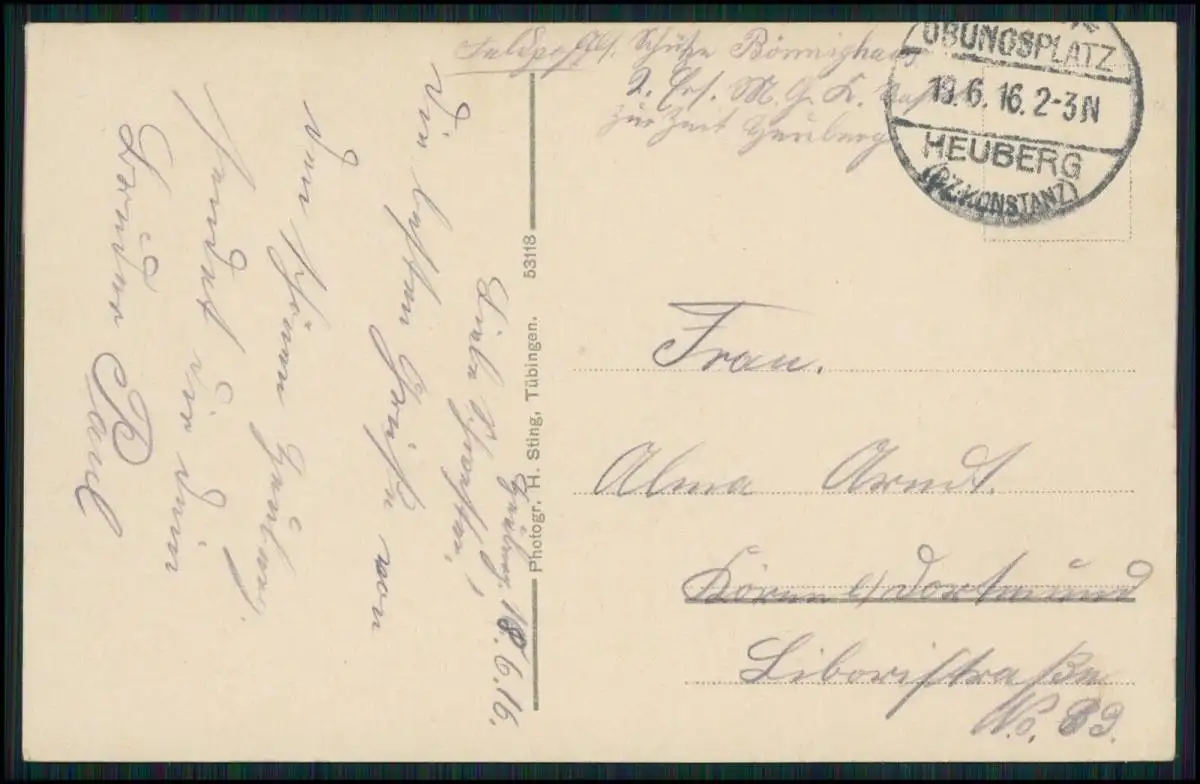 Feldpost Abs. Schütze Bönnighaus
2. Ers. M. G. K.
zur Zeit Heuberg
ÜBUNGSPLATZ
19.6.16. 2-3N
HEUBERG
(BZ.KONSTANZ)
Frau.
Alma Arndt.
Körne b/ Dortmund
Liboristraße
No. 39.
Photogr. H. Sting, Tübingen. 53118
Heuberg, 18.6.16.
Liebe Schwester,
Die besten Grüße von
dem schönen Heuberg,
sendet dir dein
Bruder Paul